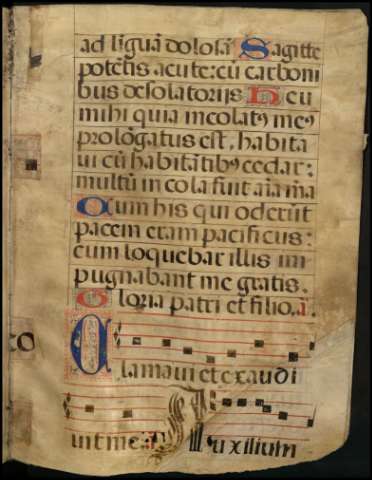 ad linguā dolosā Sagitte
potētis acute: cū carboni
bus desolatoriis Heu
mihi quia incolatꝰ meꝰ
prolōgatus est, habita
ui cū habitātibꝰ cedar:
multū incola fuit aīa mā
Cum his qui oderūt
pacem eram pacificus:
cum loquebar illis im
pugnabant me gratis.
Gloria patri et filio. ā.
Clamaui et exaudi
uit me. Auxilium